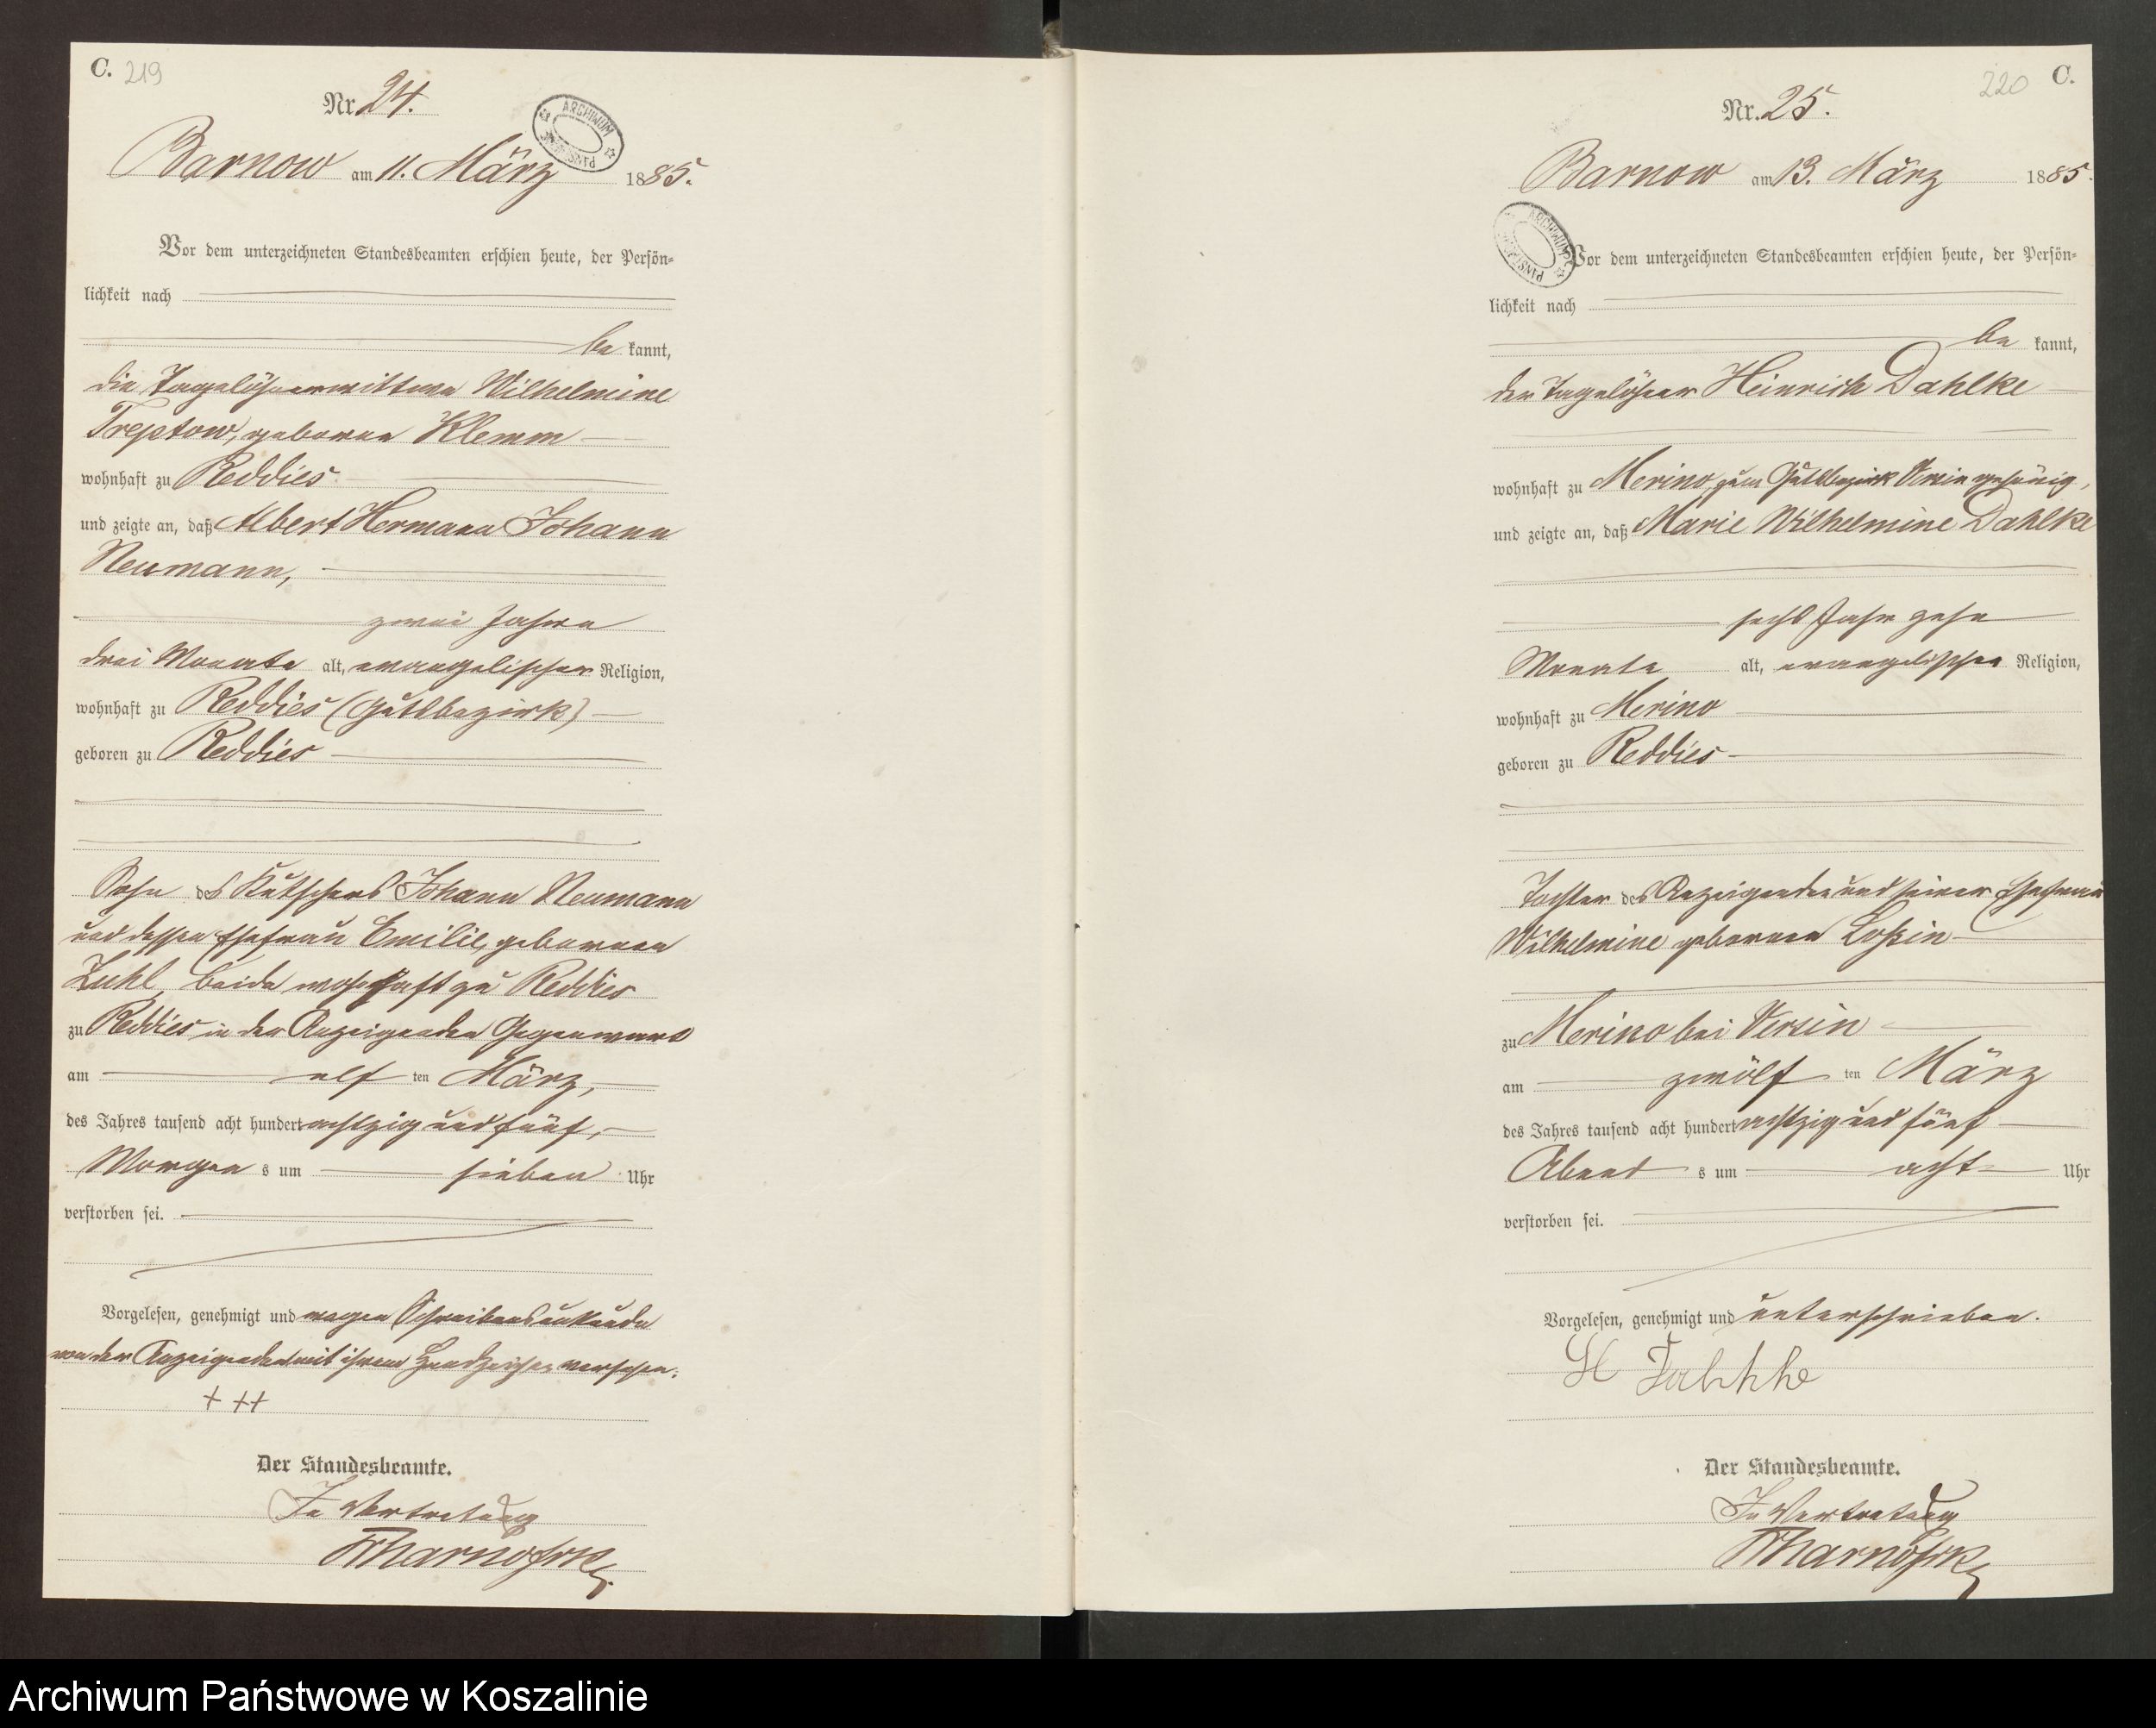 C. 219
Nr. 24.
ARCHIWUM PAŃSTWOWE
Barnow am 11. März 1885.
Vor dem unterzeichneten Standesbeamten erschien heute, der Persön-
lichkeit nach
be kannt,
die Tagelöhnerwittwe Wilhelmine
Treptow, geborne Klemm
wohnhaft zu Reddies
und zeigte an, daß Albert Hermann Johann
Neumann,
zwei Jahre
drei Monate alt, evangelischer Religion,
wohnhaft zu Reddies (Gutsbezirk)
geboren zu Reddies
Sohn des Kutschers Johann Neumann
und dessen Ehefrau Emilie, gebornen
Zuhl, beide wohnhaft zu Reddies
zu Reddies in der Anzeigenden Gegenwart
am elf ten März,
des Jahres tausend acht hundert achtzig und fünf,
Morgen s um sieben Uhr
verstorben sei.
Vorgelesen, genehmigt und wegen Schreibensunkunde
von der Anzeigenden mit ihrem Handzeichen versehen.
+ ++
Der Standesbeamte.
In Vertretung
220 C.
Nr. 25.
Barnow am 13. März 1885.
ARCHIWUM PAŃSTWOWE
Vor dem unterzeichneten Standesbeamten erschien heute, der Persön-
lichkeit nach
be kannt,
der Tagelöhner Heinrich Dahlke
wohnhaft zu Merino, zum Gutsbezirk Versin gehörig,
und zeigte an, daß Marie Wilhelmine Dahlke
sechs Jahr zehn
Monate alt, evangelischer Religion,
wohnhaft zu Merino
geboren zu Reddies
Tochter des Anzeigenden und seiner Ehefrau
Wilhelmine gebornen Loßin
zu Merino bei Versin
am zwölf ten März
des Jahres tausend acht hundert achtzig und fünf
Abend s um acht Uhr
verstorben sei.
Vorgelesen, genehmigt und unterschrieben.
H Dahlke
Der Standesbeamte.
In Vertretung
Archiwum Państwowe w Koszalinie